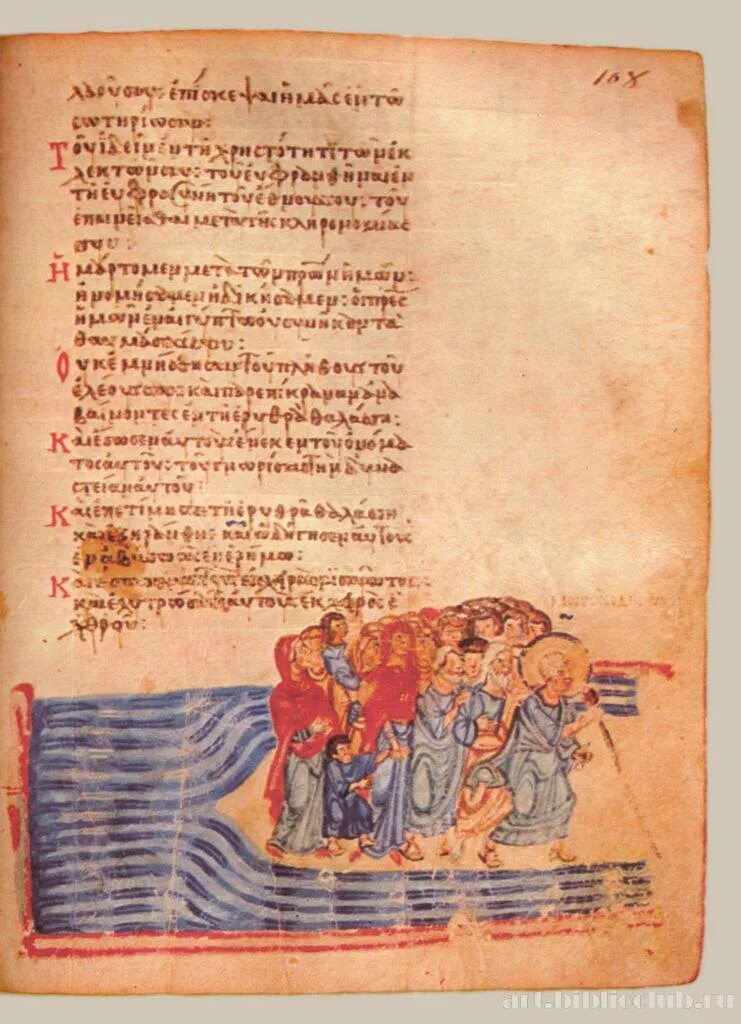 108
λαοῦ σου: ἐπίσκεψαι ἡμᾶς ἐν τῶ
σωτηρίω σου:
Τοῦ ἰδεῖν ἐν τῆ χρηστότητι τῶν ἐκ
λεκτῶν σου: τοῦ εὐφρανθῆναι ἐν
τῆ εὐφροσύνη τοῦ ἔθνους σου: τοῦ
ἐπαινεῖσθαι μετὰ τῆς κληρονομίας
σου:
Ἡμάρτομεν μετὰ τῶν πρων ἡμῶν:
ἠνομήσαμεν ἠδικήσαμεν: οἱ πρες
ἡμῶν ἐν αἰγύπτω οὐ συνῆκαν τὰ
θαυμάσιά σου:
Οὐκ ἐμνήσθησαν τοῦ πλήθους τοῦ
ἐλέους σου: καὶ παρεπίκραναν ἀνα
βαίνοντες ἐν τῆ ἐρυθρᾶ θαλάσση:
Καὶ ἔσωσεν αὐτοὺς ἕνεκεν τοῦ ὀνόμα
τος αὐτοῦ: τοῦ γνωρίσαι τὴν δυνα
στείαν αὐτοῦ:
Καὶ ἐπετίμησε τῆ ἐρυθρᾶ θαλάσση
καὶ ἐξηράνθη: καὶ ὡδήγησεν αὐτοὺς
ἐν ἀβύσσω ὡς ἐν ἐρήμω:
Καὶ ἔσωσεν αὐτοὺς ἐκ χειρὸς μισοῦντος
καὶ ἐλυτρώσατο αὐτοὺς ἐκ χειρὸς ἐ
χθροῦ:
art.biblioclub.ru